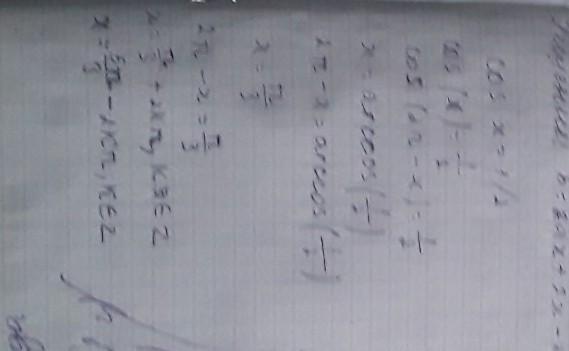 cos x = 1/2
cos(x) = 1/2
cos(2π - x) = 1/2
x = arccos(1/2)
2π - x = arccos(1/2)
x = π/3
2π - x = π/3
x = π/3 + 2Kπ, K ∈ Z
x = 5π/3 - 2Kπ, K ∈ Z